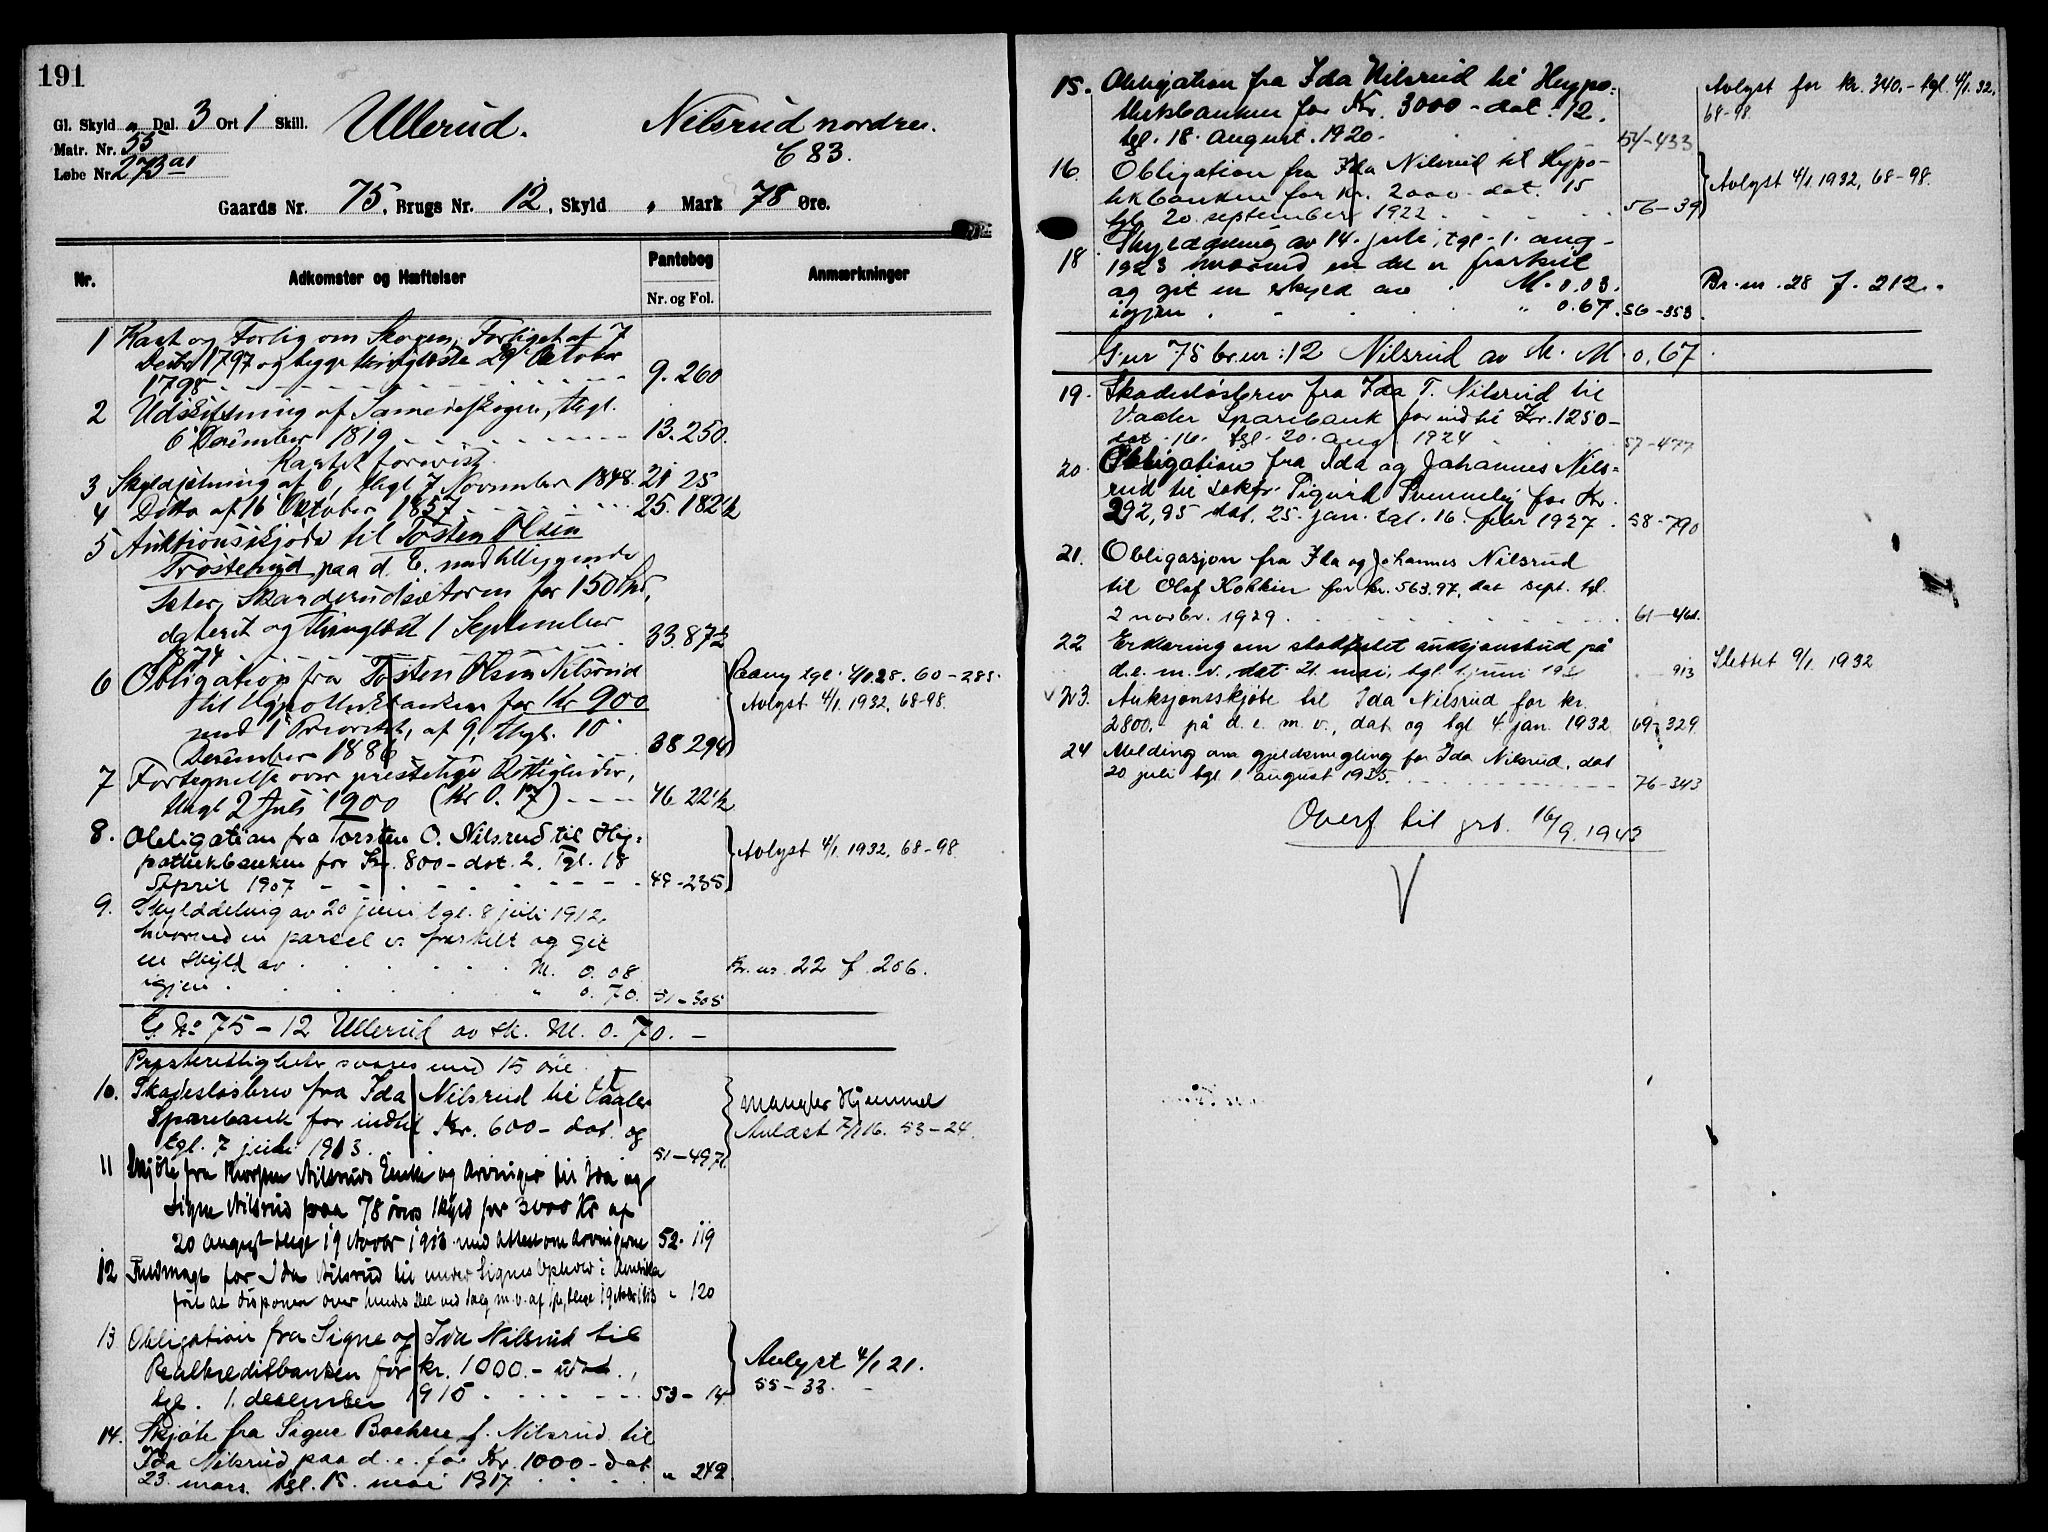 191
Gl. Skyld „ Dal. 3 Ort 1 Skill. Ullerud. Nilsrud nordre.
Matr. Nr. 55
683.
Løbe Nr. 273 a1
Gaards Nr. 75, Brugs Nr. 12, Skyld „ Mark 78 Øre.
Nr. Adkomster og Hæftelser Pantebog Anmærkninger
Nr. og Fol.
1 Kart og Forlig om Skogen, Forliget af 7
Decbr 1797 og begge tinglæste 29 Oktober
1798 9. 260
2 Udskiftning af Sameieskogen, thgl.
6 December 1819 13. 250.
Kartet forevist.
3 Skyldsetning af 6, thgl 7 November 1848. 21 25
4 Ditto af 16 Oktober 1857 25. 182½
5 Auktionsskjøde til Tosten Olsen
Trosterud paa d. E. med tilliggende
Sæter, Skarderudsæteren for 150 Spd,
dateret og thinglæst 1 September
1874 33.87½
6 Obligation fra Tosten Olsen Nilsrud
til Hypothekbanken for Kr 900
med 1 Prioritet, af 9, thgl. 10
December 1886 38 294
tgl. 4/10.28. 60-285.
Avlyst 4/1. 1932, 68-98.
7 Fortegnelse over prestelige Rettigheder,
thgl 2 Juli 1900 (Kr 0.17) 46 22½
8. Obligation fra Torsten O. Nilsrud til Hy=
pothekbanken for Kr. 800- dat. 2. Tgl. 18
April 1907 49-235
Avlyst 4/1. 1932, 68-98.
9. Skylddeling av 20 juni, tgl. 8 juli 1912,
hvorved en parsel er fraskilt og git
en skyld av M. 0.08
igjen „ 0.70. 51-305
Br. nr. 22 f. 206.
G. No 75-12 Ullerud av sk. M. 0.70.-
Presterettigheter svares med 15 øre.
10. Skadesløsbrev fra Ida Nilsrud til Vaaler
Sparebank for indtil Kr. 600- dat. og
tgl. 7 juli 1913. 51-497
mangler Hjemmel
Avlæst 53-24.
11 Skjøte fra Nilsruds Enke og Arvinger til Ida og
Signe Nilsrud paa 78 øres skyld for 3000 Kr af
20 august thgl 19 Novbr 1913 med attest om arvingerne 52. 119
12 Fuldmagt for Ida Nilsrud til under Signes Ophold i Amerika
at disponere over hendes Del ved Salg m.v. af thgl 19 Novbr 1913 „ 120
13 Obligation fra Signe og Ida Nilsrud til
Realkreditbanken for kr. 1000.-
tgl. 1. desember 1915 53-14
Avlyst 4/1 21.
55-33.
14. Skjøte fra Signe f. Nilsrud til
Ida Nilsrud paa d. e. for Kr. 1000- dat
23. mars, tgl. 15. mai 1917 „ 242
15. Obligation fra Ida Nilsrud til Hypo=
thekbanken for Kr. 3000- dat. 12.
tgl. 18. august. 1920. 54-433
Avlyst for kr. 340.- tgl. 4/1.32.
68-98.
16. Obligation fra Ida Nilsrud til Hypo-
tekbanken for Kr. 2000- dat. 15
tgl. 20. september 1922 56-39
Avlyst 4/1 1932, 68-98.
18 Skylddeling av 14. juli, tgl. 1. aug.
1923 hvorved en del er fraskilt
og git en skyld av M. 0.03.
igjen „ 0.67. 56-353.
Br. nr. 28 f. 212.
Gnr 75 br.nr: 12 Nilsrud av sk. M. 0,67.
19. Skadesløsbrev fra Ida T. Nilsrud til
Vaaler Sparebank for indtil Kr. 1250-
dat. 16. tgl. 20. aug 1924 57-477
20. Obligation fra Ida og Johannes Nils=
rud til Sigurd for Kr.
292,95 dat. 25. jan. tgl. 16. febr 1927. 58-790
21. Obligasjon fra Ida og Johannes Nilsrud
til Olaf Kokkin for kr. 563.97, dat sept. tgl.
2 novbr. 1929. 61-461.
22 Erklæring om stadfestet auksjonsbud på
d. e. m. v., dat 21. mai, tgl. 1 juni 193 913
Slettet 9/1. 1932
23. Auksjonsskjøte til Ida Nilsrud for kr.
2800.- på d. e. m. v., dat og tgl 4. jan. 1932 69-329
24 Melding om gjeldsmegling for Ida Nilsrud, dat
20 juli tgl 1 august 1935. 76-343
Overf. til grb. 16/9. 1943
V